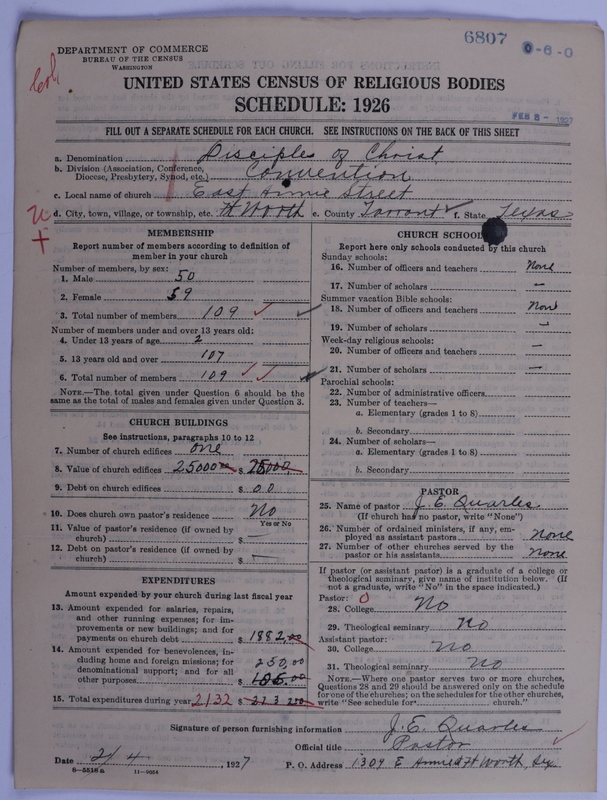 6807
DEPARTMENT OF COMMERCE
BUREAU OF THE CENSUS
WASHINGTON
0-6-0
UNITED STATES CENSUS OF RELIGIOUS BODIES
SCHEDULE: 1926
FEB 8 - 1927
FILL OUT A SEPARATE SCHEDULE FOR EACH CHURCH. SEE INSTRUCTIONS ON THE BACK OF THIS SHEET
a. Denomination Disciples of Christ
b. Division (Association, Conference, Diocese, Presbytery, Synod, etc.) Convention
c. Local name of church East Annie Street
d. City, town, village, or township, etc. Ft Worth e. County Tarrant f. State Texas
MEMBERSHIP
Report number of members according to definition of
member in your church
Number of members, by sex:
1. Male 50
2. Female 59
3. Total number of members 109
Number of members under and over 13 years old:
4. Under 13 years of age 2
5. 13 years old and over 107
6. Total number of members 109
NOTE.—The total given under Question 6 should be
same as the total of males and females given under Question 3.
CHURCH BUILDINGS
See instructions, paragraphs 10 to 12
7. Number of church edifices one
8. Value of church edifices 25000 00 $ 25000
9. Debt on church edifices $ 00
10. Does church own pastor's residence No
Yes or No
11. Value of pastor's residence (if owned by
church) $ —
12. Debt on pastor's residence (if owned by
church) $ —
EXPENDITURES
Amount expended by your church during last fiscal year
13. Amount expended for salaries, repairs,
and other running expenses; for im-
provements or new buildings; and for
payments on church debt $ 1882.00
14. Amount expended for benevolences, in-
cluding home and foreign missions; for
denominational support; and for all
other purposes 250.00
15. Total expenditures during year 2132 $
CHURCH SCHOOLS
Report here only schools conducted by this church
Sunday schools:
16. Number of officers and teachers None
17. Number of scholars —
Summer vacation Bible schools:
18. Number of officers and teachers None
19. Number of scholars —
Week-day religious schools:
20. Number of officers and teachers —
21. Number of scholars —
Parochial schools:
22. Number of administrative officers
23. Number of teachers—
a. Elementary (grades 1 to 8)
b. Secondary
24. Number of scholars—
a. Elementary (grades 1 to 8)
b. Secondary
PASTOR
25. Name of pastor J. E. Quarles
(If church has no pastor, write "None")
26. Number of ordained ministers, if any, em-
ployed as assistant pastors None
27. Number of other churches served by the
pastor or his assistants None
If pastor (or assistant pastor) is a graduate of a college or
theological seminary, give name of institution below. (If
not a graduate, write "No" in the space indicated.)
Pastor: 0
28. College No
29. Theological seminary No
Assistant pastor:
30. College No
31. Theological seminary No
NOTE.—Where one pastor serves two or more churches,
Questions 28 and 29 should be answered only on the schedule
for one of the churches; on the schedules for the other churches,
write "See schedule for church."
Signature of person furnishing information J. E. Quarles
Official title Pastor
Date 2/4, 1927 P. O. Address 1309 E Annie St Ft Worth, Tex
S—5518 a 11—9054